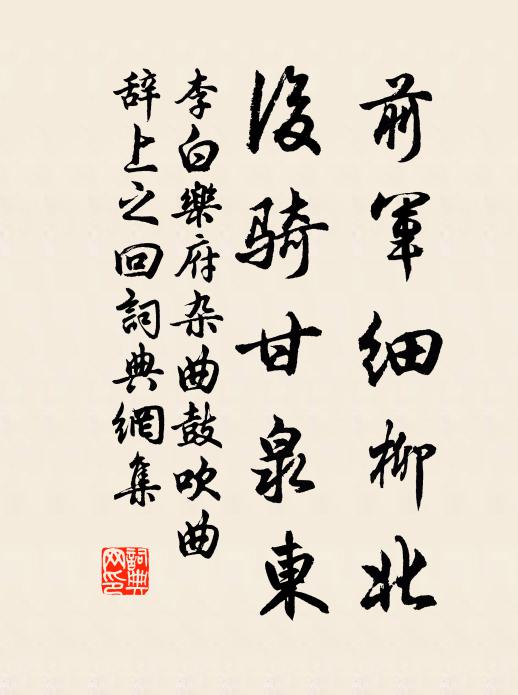 前軍細柳北
後騎甘泉東
李白樂府杂曲鼓吹曲
辞上之回詞典網集
詞典网印